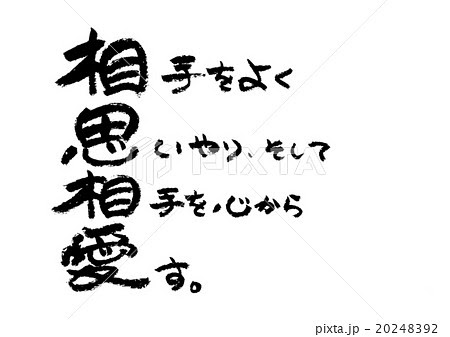 相手をよく
思いやり、そして
相手を心から
愛す。
PIXTA
pixta.jp - 20248392